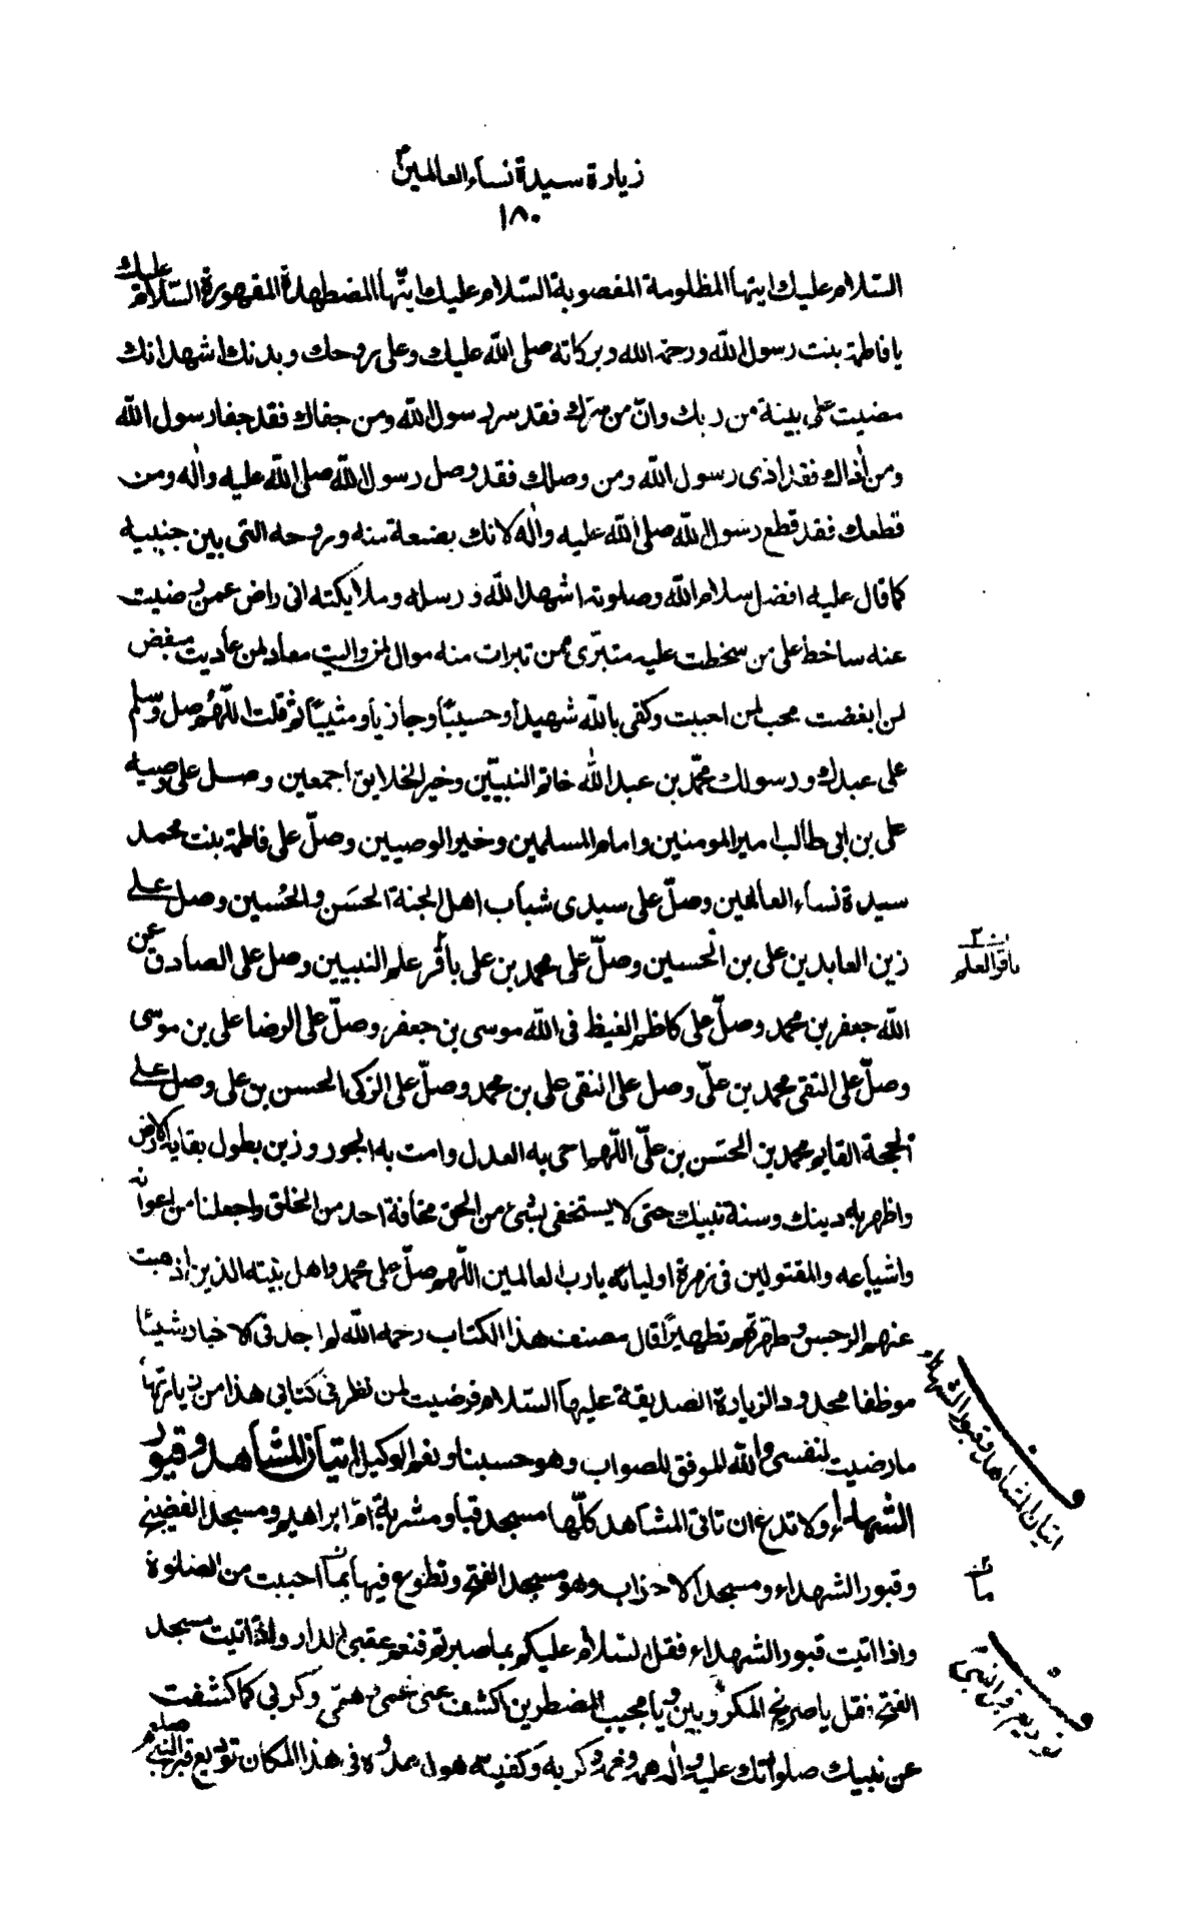 زيارة سيدة نساء العالمين ع
١٨٠
السّلام عليك ايتها المظلومة المغصوبة السّلام عليك ايّتها المضطهدة المقهورة السّلام عليك
يا فاطمة بنت رسول اللّه ورحمة الله وبركاته صلى اللّه عليك وعلى روحك وبدنك اشهد انك
مضيت على بينة من ربك وانّ من سرّك فقد سر رسول اللّه ومن جفاك فقد جفا رسول اللّه
ومن اٰذاك فقد اٰذى رسول اللّه ومن وصلك فقد وصل رسول اللّه صلى اللّه عليه واٰله ومن
قطعك فقد قطع رسول اللّه صلى اللّه عليه واٰله لانك بضعة منه وروحه التى بين جنبيه
كما قال عليه افضل سلام اللّه وصلوته اشهد اللّه ورسله وملايكته انى راض عمن رضيت
عنه ساخط على من سخطت عليه متبرّى ممن تبرات منه موال لمن واليت معاد لمن عاديت مبغض
لمن ابغضت محب لمن احببت وكفى باللّه شهيداً وحسيبًا وجازياً ومثيبًا ثم قلت اللّهُم صل وسلم
على عبدك ورسولك محمّد بن عبد اللّٰه خاتم النبيّين وخير الخلايق اجمعين وصل على وصيه
على بن ابى طالب امير المومنين وامام المسلمين وخير الوصيين وصلّ على فاطمة بنت محمد
سيدة نساء العالمين وصلّ على سيدى شباب اهل الجنة الحسَن والحُسين وصل على
زين العابدين على بن الحسين وصلّ على محمد بن على باقر علم النبيين وصل على الصادق عن
اللّه جعفر بن محمد وصلّ على كاظم الغيظ فى اللّه موسى بن جعفر وصلّ على الرضا على بن موسى
وصلّ على التقى محمد بن علّى وصل على النقى على بن محمد وصلّ على الزكى الحسن بن على وصل على
الحجة القايم محمد بن الحسَن بن علّى اللّهم احى به العدل وامت به الجور وزين بطول بقايه الارض
واظهر به دينك وسنة نبيك حتى لا يستخفى بشئ من الحق مخافة احد من الخلق واجعلنا من اعوانه
واشياعه والمقتولين فى زمرة اوليائه يا رب العالمين اللّهم صلّ على محمد واهل بيته الذين اذهبت
عنهم الرجس وطهرتهم تطهيرًا قال مصنف هذا الكتاب رحمه اللّه لم اجد فى الاخبار شيئًا
موظفا محدودا لزيارة الصديقة عليها السّلام فرضيت لمن نظر فى كتابى هذا من زيارتها
ما رضيت لنفسى واللّه الموفق للصواب وهو حسبنا ونعم الوكيل اتيان المشاهد وقبور
الشهداء ولا تدع ان تاتى المشاهد كلّها مسجد قبا ومشربة امّ ابراهيم ومسجد الفضيخ
وقبور الشهداء ومسجد الاحزاب وهو مسجد الفتح وتطوع فيها بما احببت من الصلوة
واذا اتيت قبور الشهداء فقل السّلام عليكم بما صبرتم فنعم عقبى الدار واذا اتيت مسجد
الفتح فقل يا صريخ المكروبين ويا مجيب المضطرين اكشف عنى غمى وهمّى وكربى كما كشفت
عن نبيك صلواتك عليه واٰله همه وغمه وكربه وكفيته هول عدوه فى هذا المكان توديع قبر النبى صلعم
باقر العلم
اتيان المشاهد وقبور الشهداء
توديع قبر النبىّ